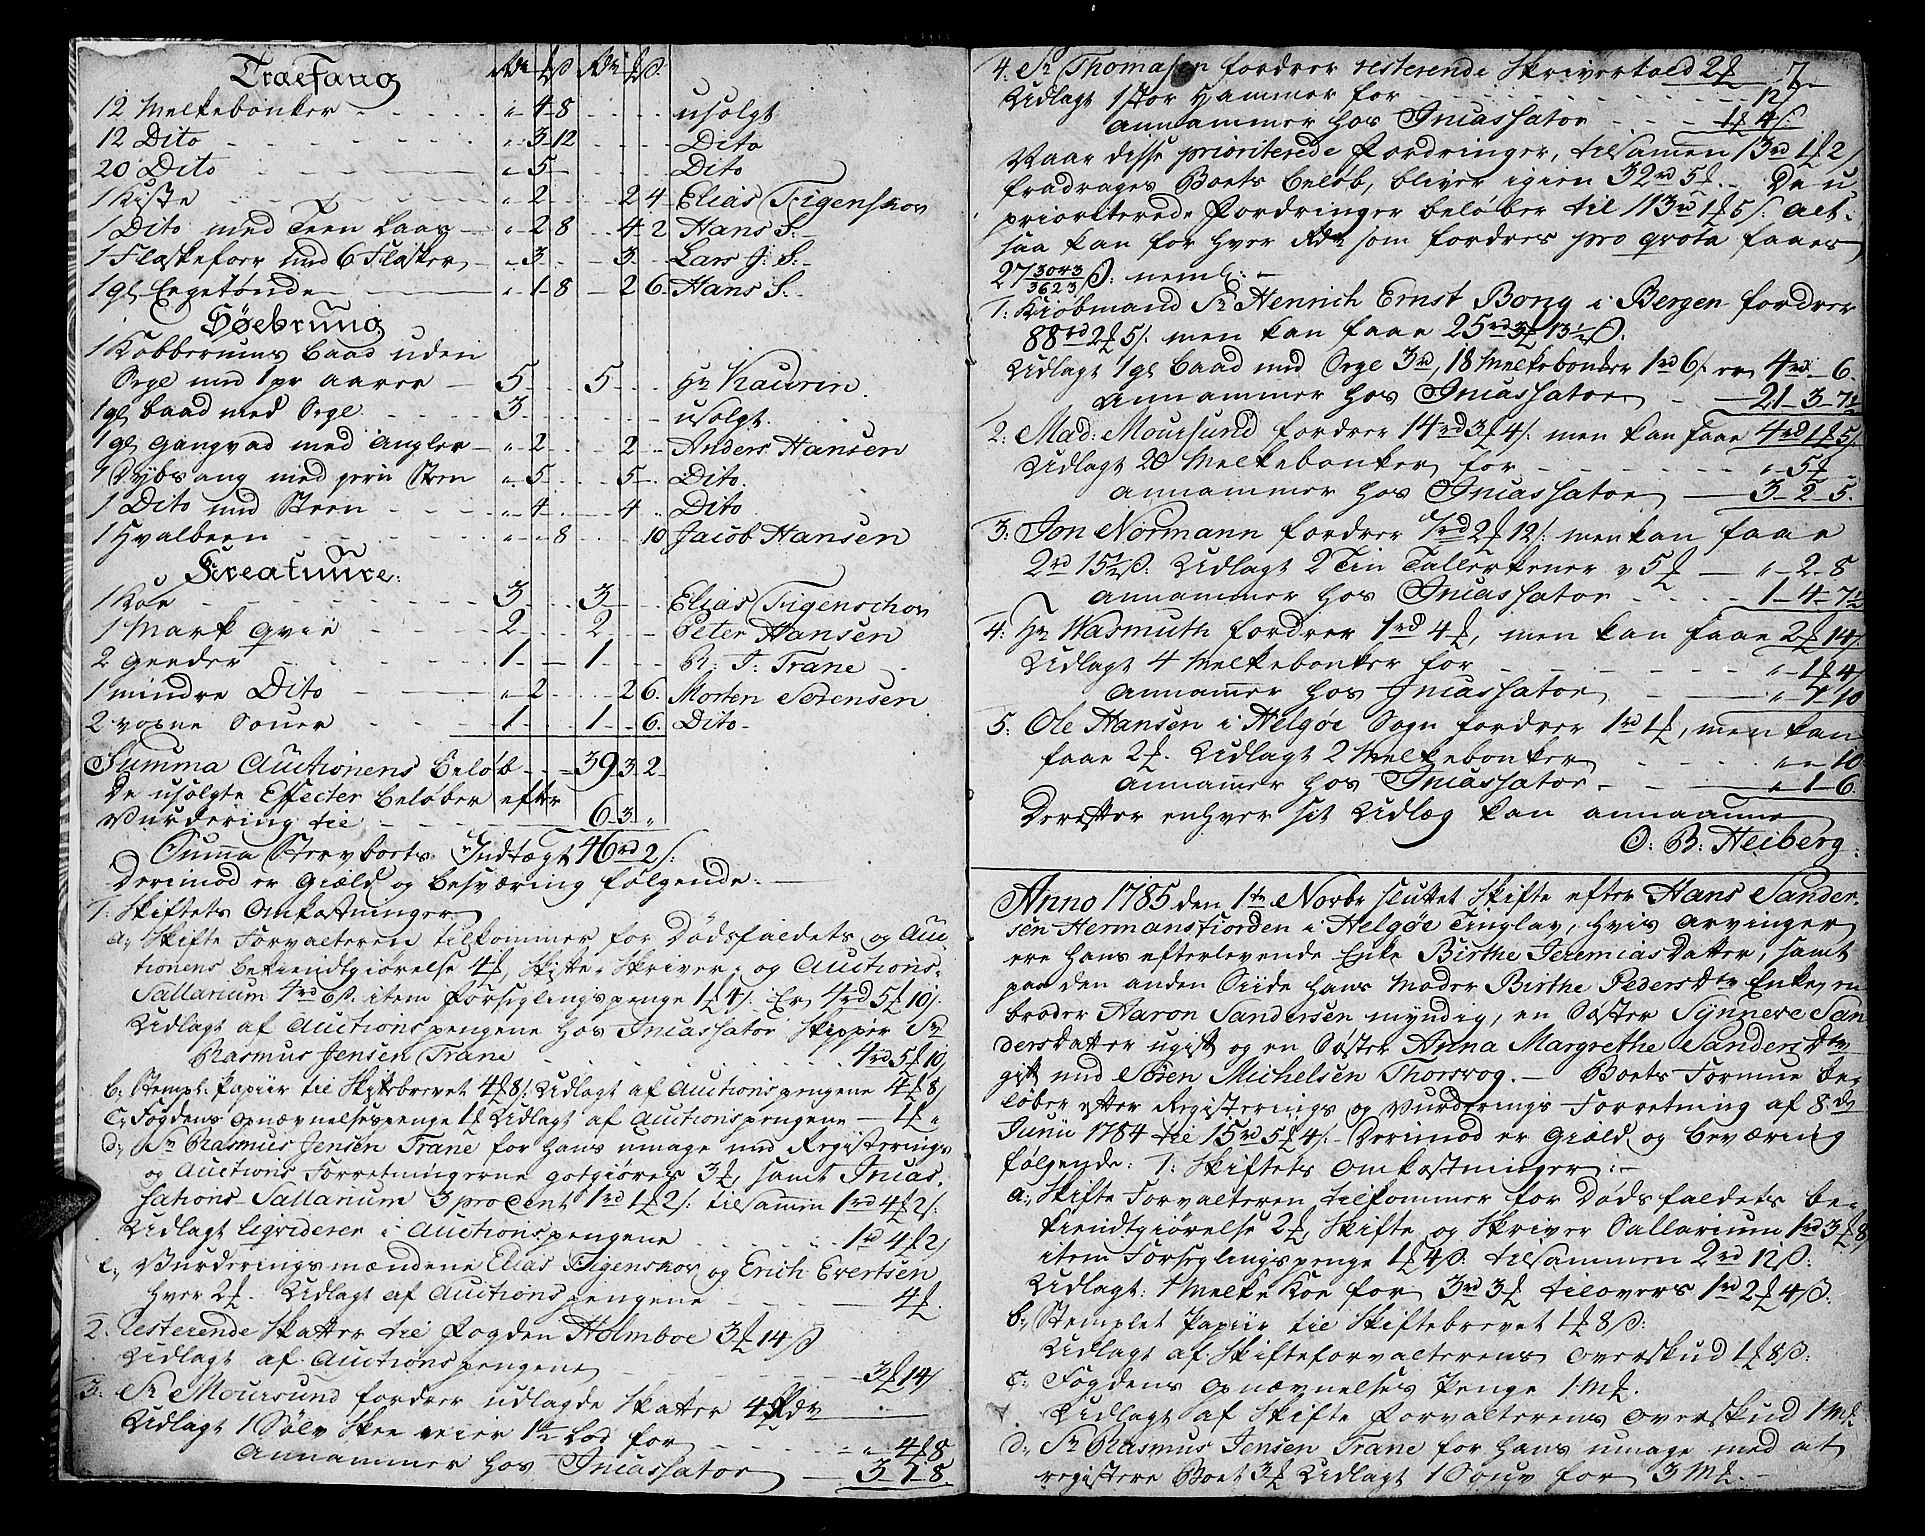 Træfang Rdr ₰ ß Rdr ₰ ß
12 Melkebonker - - - " 4 8 - - usolgt
12 Dito - - - " 3 12 - - Dito
20 Dito - - - " 5 - - - Dito
1 Kiste - - - " 2 - - 2 4 Elias Figenskov
1 Dito med Teen Laas - " 2 8 - 4 2 Hans S:
1 Flaskefoer med 6 Flasker - " 3 - - 3 - Lars J: S:
1 gl Egetønde - " 1 8 - 2 6 Hans S:
Søebrung
1 Kobberums Baad uden
Segl med 1 pr Aarer - 5 - - 5 - - Hr Kaurin
1 gl Baad med Segl - 3 - - - usolgt
1 gl gangvad med Angler - " 2 - - 2 - Anders Hansen
1 Dybsang med Steen " 5 - - 5 - Dito
1 Dito med Steen - " 4 - - 4 " Dito
1 Hvalbeen - " " 8 - - 10 Jacob Hansen
Kreature:
1 Koe - 3 - - 3 - - Elias Figenschov
1 Mark Qvie - 2 - - 2 - - Peter Hansen
2 Geeder - 1 - - 1 - - R: J: Trane
1 mindre Dito - " 2 - - 2 6 Morten Sørensen
2 voxne Souer - 1 - - 1 - 6 Dito
Summa Auctionens Beløb - - 39 3 2
De usolgte Effecter beløber efter
Vurdering til - - 6 3 "
Suma Stervboets Indtægt 46 rd 2 ß:
Derimod er Gield og besværing følgende:
1: Skiftets Omkostninger
a., Skifte Forvalteren tilkommer for Dødsfaldets og Auc
tionens bekiendtgiørelse 4 ₰, Skifte- Skriver- og Auctions-
Sallarium 4 rd 6 ß. item Forseglingspenge 1 ₰ 4 ß. Er 4 rd 5 ₰ 10 ß.
Udlagt af Auctionspengene hos Incassator Skipper Sr
Rasmus Jensen Trane - - - 4 rd 5 ₰ 10
b., Stempl: Papiir til Skiftebrevet 4 ₰ 8 ß. Udlagt af Auctionspengene 4 ₰ 8 ß
c., Fogdens Opnævnelsespenge 1 ₰ Udlagt af Auctionspengene 1 ₰ "
d., Sr Rasmus Jensen Trane for hans umage med Registerings
og Auctions Forretningerne gotgiøres 3 ₰, samt Incas-
sations Sallarium 3 procent 1 rd 1 ₰ 2 ß: tilsamen 1 rd 4 ₰ 2 ß:
Udlagt ligeledeer i Auctionspengene - - 1 rd 4 ₰ 2 ß
e., Vurderingsmændene Elias Figenskov og Erich Evertsen
hver 2 ₰. Udlagt af Auctionspengene - - 4 ₰.
2. Resterende Skatter til Fogden Holmboe 3 ₰ 14 ß
Udlagt af Auctionspengene - - 3 ₰ 14 ß
3. Sr Moursund fordrer udlagde Skatter 4 Rdr
Udlagt 1 Sølv Skee veier Lod for - - " 4 ₰ 8
Annammer hos Incassator - 3 1 8.
4. Sr Thomasen fordrer resterende Skrivertold 2 ₰ 7
Udlagt 1 stor Hammer for - - 12 ß
annammer hos Incassator - - 1 ₰ 4 ß
Naar disse prioriterede Fordringer, tilsamen 13 rd 1 ₰ 2 ß
fradrages Boets beløb, bliver igien 32 rd 5 ₰. De u-
prioriterede Fordringer beløber til 113 rd 1 ₰ 5 ß. Alt-
saa kan for hver Rdr som fordres pro qvota faaes
27 3043/3623 ß: neml: -
1: Kiøbmand Sr Henrich Ernst Bong i Bergen fordrer
88 rd 2 ₰ 5 ß. men kan faae 25 rd 3 ₰ 13 1/2 ß.
Udlagt 1 gl Baad med Segl 3 rd, 18 Melkebonker 1 rd 6 ß. er 4 rd - 6.
annammer hos Incassator - 21 - 3 - 7 1/2
2: Mad: Moursund fordrer 14 rd 3 ₰ 4 ß. men kan faae 4 rd 1 ₰ 5 ß.
Udlagt 20 Melkebonker for - - " 5 ₰ -
annammer hos Incassator - 3 - 2 5.
3: Jon Normann fordrer 7 rd 2 ₰ 12 ß. men kan faae
2 rd 15 1/2 ß. Udlagt 2 Tin Tallerkener a 5 ₰ - " - 2 - 8
annammer hos Incassator - - 1 - 4 - 7 1/2
4: Hr Wasmuth fordrer 1 rd 4 ₰, men kan faae 2 ₰ 14 ß.
Udlagt 4 Melkebonker for - - " 1 ₰ 4 ß
Annamer hos Incassator - - " 1 10
5: Ole Hansen i Helgøe Sogn fordrer 1 rd 1 ₰, men kan
faae 2 ₰. Udlagt 2 Melkebonker - - " " 10
Annamer hos Incassator - - " 1 - 6.
Derefter enhver sit Udlæg kan annamme
O: B: Heiberg.
Anno 1785 den 1te Novbr sluttet Skifte efter Hans Sander-
sen Hermansfiorden i Helgøe Tinglav, hvis Arvinger
ere hans efterlevende Enke Birthe JeremiasDatter, samt
paa den anden Siide hans Moder Birthe Pedersdtr Enke, en
broder Aaron Sandersen myndig, en Søster Synneve San
dersdatter ugift og en Søster Anna Margrethe Sandersdtr
gift med Søren Michelsen Thorsvog. - Boets Formue be-
løber efter Registerings og Vurderings Forretning af 8de
Junii 1784 til 15 rd 5 ₰ 4 ß. Derimod er Gield og beværing
følgende: 1: Skiftets Omkostninger:
a., Skifte Forvalteren tilkommer for Dødsfaldets be-
kiendtgiørelse 2 ₰, Skifte og Skriver Sallarium 1 rd 3 ₰ 8
item Forseglingspenge 1 ₰ 4 ß. tilsammen 2 rd 12 ß:
Udlagt: 1 Melke Koe for 3 rd 3 ₰ tilovers 1 rd 2 ₰ 4 ß.
b., Stemplet Papiir til Skiftebrevet 1 ₰ 8 ß:
Udlagt af Skifteforvalterens Overskud 1 ₰ 8 ß:
c., Fogdens Opnævnelses Penge 1 M₰.
Udlagt af Skifte Forvalterens Overskud 1 M₰.
d., Sr Rasmus Jensen Trane for hans umage med at
registere Boet 3 ₰ Udlagt 1 Souv for 3 M₰.